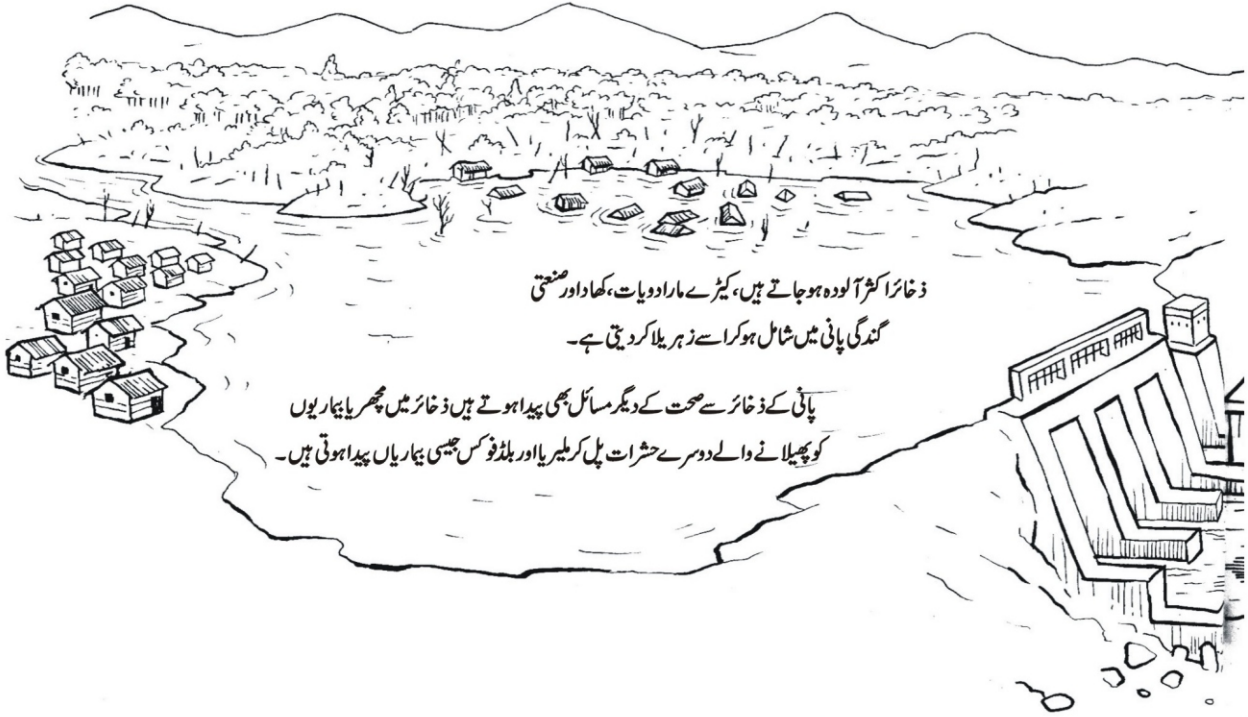 ذخائر اکثر آلودہ ہوجاتے ہیں، کیڑے مار ادویات، کھاد اور صنعتی
گندگی پانی میں شامل ہوکر اسے زہریلا کردیتی ہے۔
پانی کے ذخائر سے صحت کے دیگر مسائل بھی پیدا ہوتے ہیں ذخائر میں مچھر یا بیماریوں
کو پھیلانے والے دوسرے حشرات پل کر ملیریا اور بلڈ فوکس جیسی بیماریاں پیدا ہوتی ہیں۔